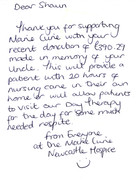 Dear Shaun
Thank you for supporting
Marie Curie with your
recent donation of £390.29
made in memory of your
Uncle. This will provide a
patient with 20 hours of
nursing care in their own
home or will allow patients
to visit our Day Therapy
for the day for some much
needed respite.
from Everyone
at the Marie Curie
Newcastle Hospice